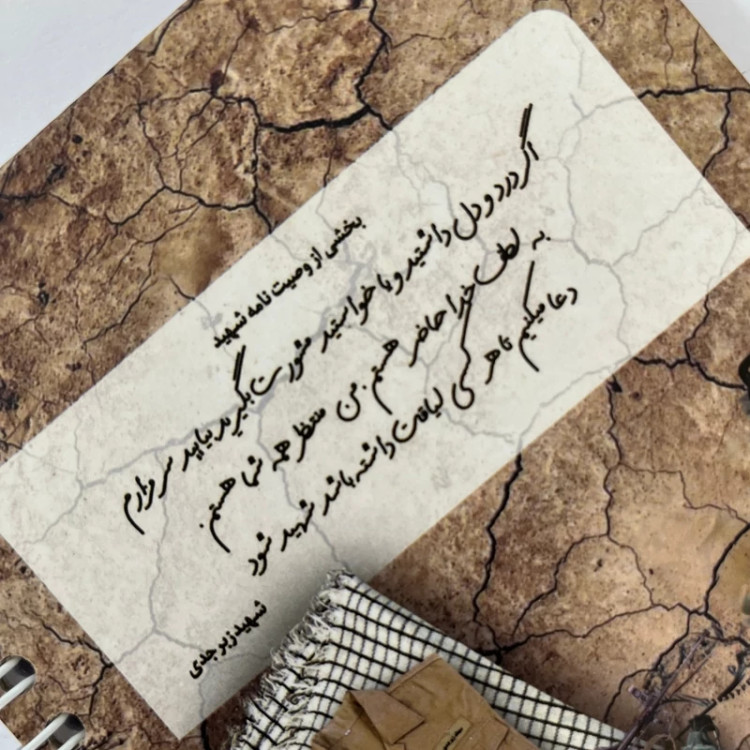 بخشی از وصیت نامه شهید
اگر درد و دل داشتید و یا خواستید مشورت بگیرید بیاید سر مزارم
به لطف خدا حاضر هستم. من منتظر همه شما هستم.
دعا میکنیم تا هر کسی لیاقت داشته باشد شهید شود
شهید زبر جدی